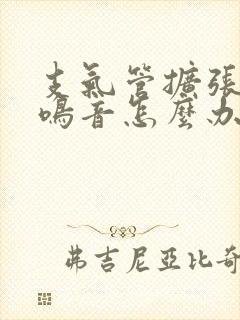 支氣管擴張
鳴音怎麼办
弗吉尼亞比奇